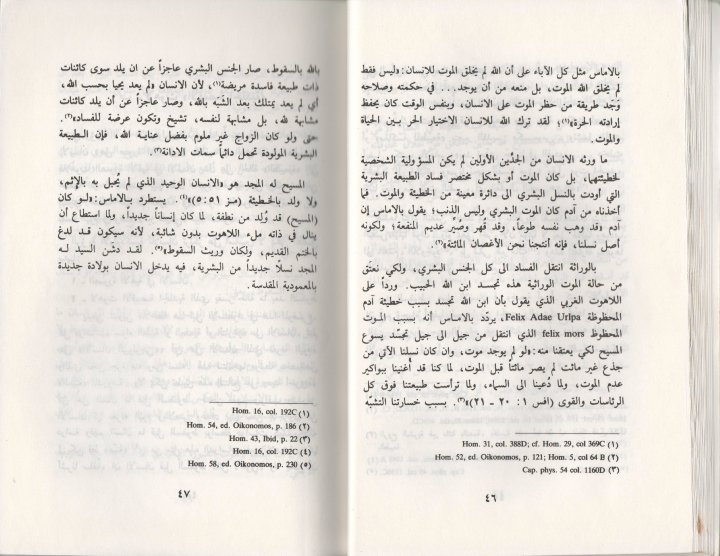 بالاماس مثل كل الآباء على أن الله لم يخلق الموت للانسان: «ليس فقط
لم يخلق الله الموت، بل منعه من أن يوجد... في حكمته وصلاحه
وَجَد طريقة من حظر الموت على الانسان، وبنفس الوقت كان يحفظ
إرادته الحرة»(١)؛ لقد ترك الله للانسان الاختيار الحر بين الحياة
والموت.
ما ورثه الانسان من الجدّين الأولين لم يكن المسؤولية الشخصية
لخطيئتهما، بل كان الموت أو بشكل مختصر فساد الطبيعة البشرية
التي أودت بالنسل البشري الى دائرة معينة من الخطيئة والموت. فما
أخذناه من آدم كان الموت البشري وليس الذنب؛ يقول بالاماس إن
آدم «قد وهب نفسه طوعاً، وقد قُهر وصُيِّر عديم المنفعة؛ ولكونه
أصل نسلنا، فإنه أنتجنا نحن الأغصان المائتة»(٢).
بالوراثة انتقل الفساد الى كل الجنس البشري، ولكي نعتَق
من حالة الموت الوراثية هذه تجسد ابن الله الحبيب. ورداً على
اللاهوت الغربي الذي يقول بأن ابن الله تجسد بسبب خطيئة آدم
المحظوظة Felix Adae Urlpa، يردّد بالاماس أنه بسبب الموت
المحظوظ felix mors الذي انتقل من جيل الى جيل تجسّد يسوع
المسيح لكي يعتقنا منه: «لو لم يوجد موت، وان كان نسلنا الآتي من
جذع غير مائت لم يصر مائتاً قبل الموت، لما كنا قد أُغنينا ببواكير
عدم الموت، ولما دُعينا الى السماء، ولما ترأست طبيعتنا فوق كل
الرئاسات والقوى (افس ١: ٢٠ ـ ٢١)»(٣). بسبب خسارتنا التشبّه
Hom. 31, col. 388D; cf. Hom. 29, col 369C (١)
Hom. 52, ed. Oikonomos, p. 121; Hom. 5, col 64 B (٢)
Cap. phys. 54 col. 1160D (٣)
٤٦
بالله بالسقوط، صار الجنس البشري عاجزاً عن ان يلد سوى كائنات
ذات طبيعة فاسدة مريضة(١)، لأن الانسان «لم يعد يحيا بحسب الله،
أي لم يعد يمتلك بعد الشَبَه بالله، وصار عاجزاً عن أن يلد كائنات
مشابهة لله، بل مشابهة لنفسه، تشيخ وتكون عرضة للفساد»(٢).
حتى ولو كان الزواج غير ملوم بفضل عناية الله، فإن الطبيعة
البشرية المولودة تحمل دائماً سمات الادانة(٣).
المسيح له المجد هو «الانسان الوحيد الذي لم يُحبل به بالإثم،
ولا ولد بالخطيئة (مز ٥١:٥)»(٤). يستطرد بالاماس: «لو كان
(المسيح) قد وُلِد من نطفة، لما كان إنساناً جديداً، ولما استطاع أن
ينال في ذاته ملء اللاهوت بدون شائبة، لأنه سيكون قد لدغ
بالختم القديم، ولكان وريث السقوط»(٥). لقد دشّن السيد لـه
المجد نسلاً جديداً من البشرية، فيه يدخل الانسان بولادة جديدة
بالمعمودية المقدسة.
Hom. 16, col. 192C (١)
Hom. 54, ed. Oikonomos, p. 186 (٢)
Hom. 43, Ibid, p. 22 (٣)
Hom. 16, col. 192C (٤)
Hom. 58, ed. Oikonomos, p. 230 (٥)
٤٧